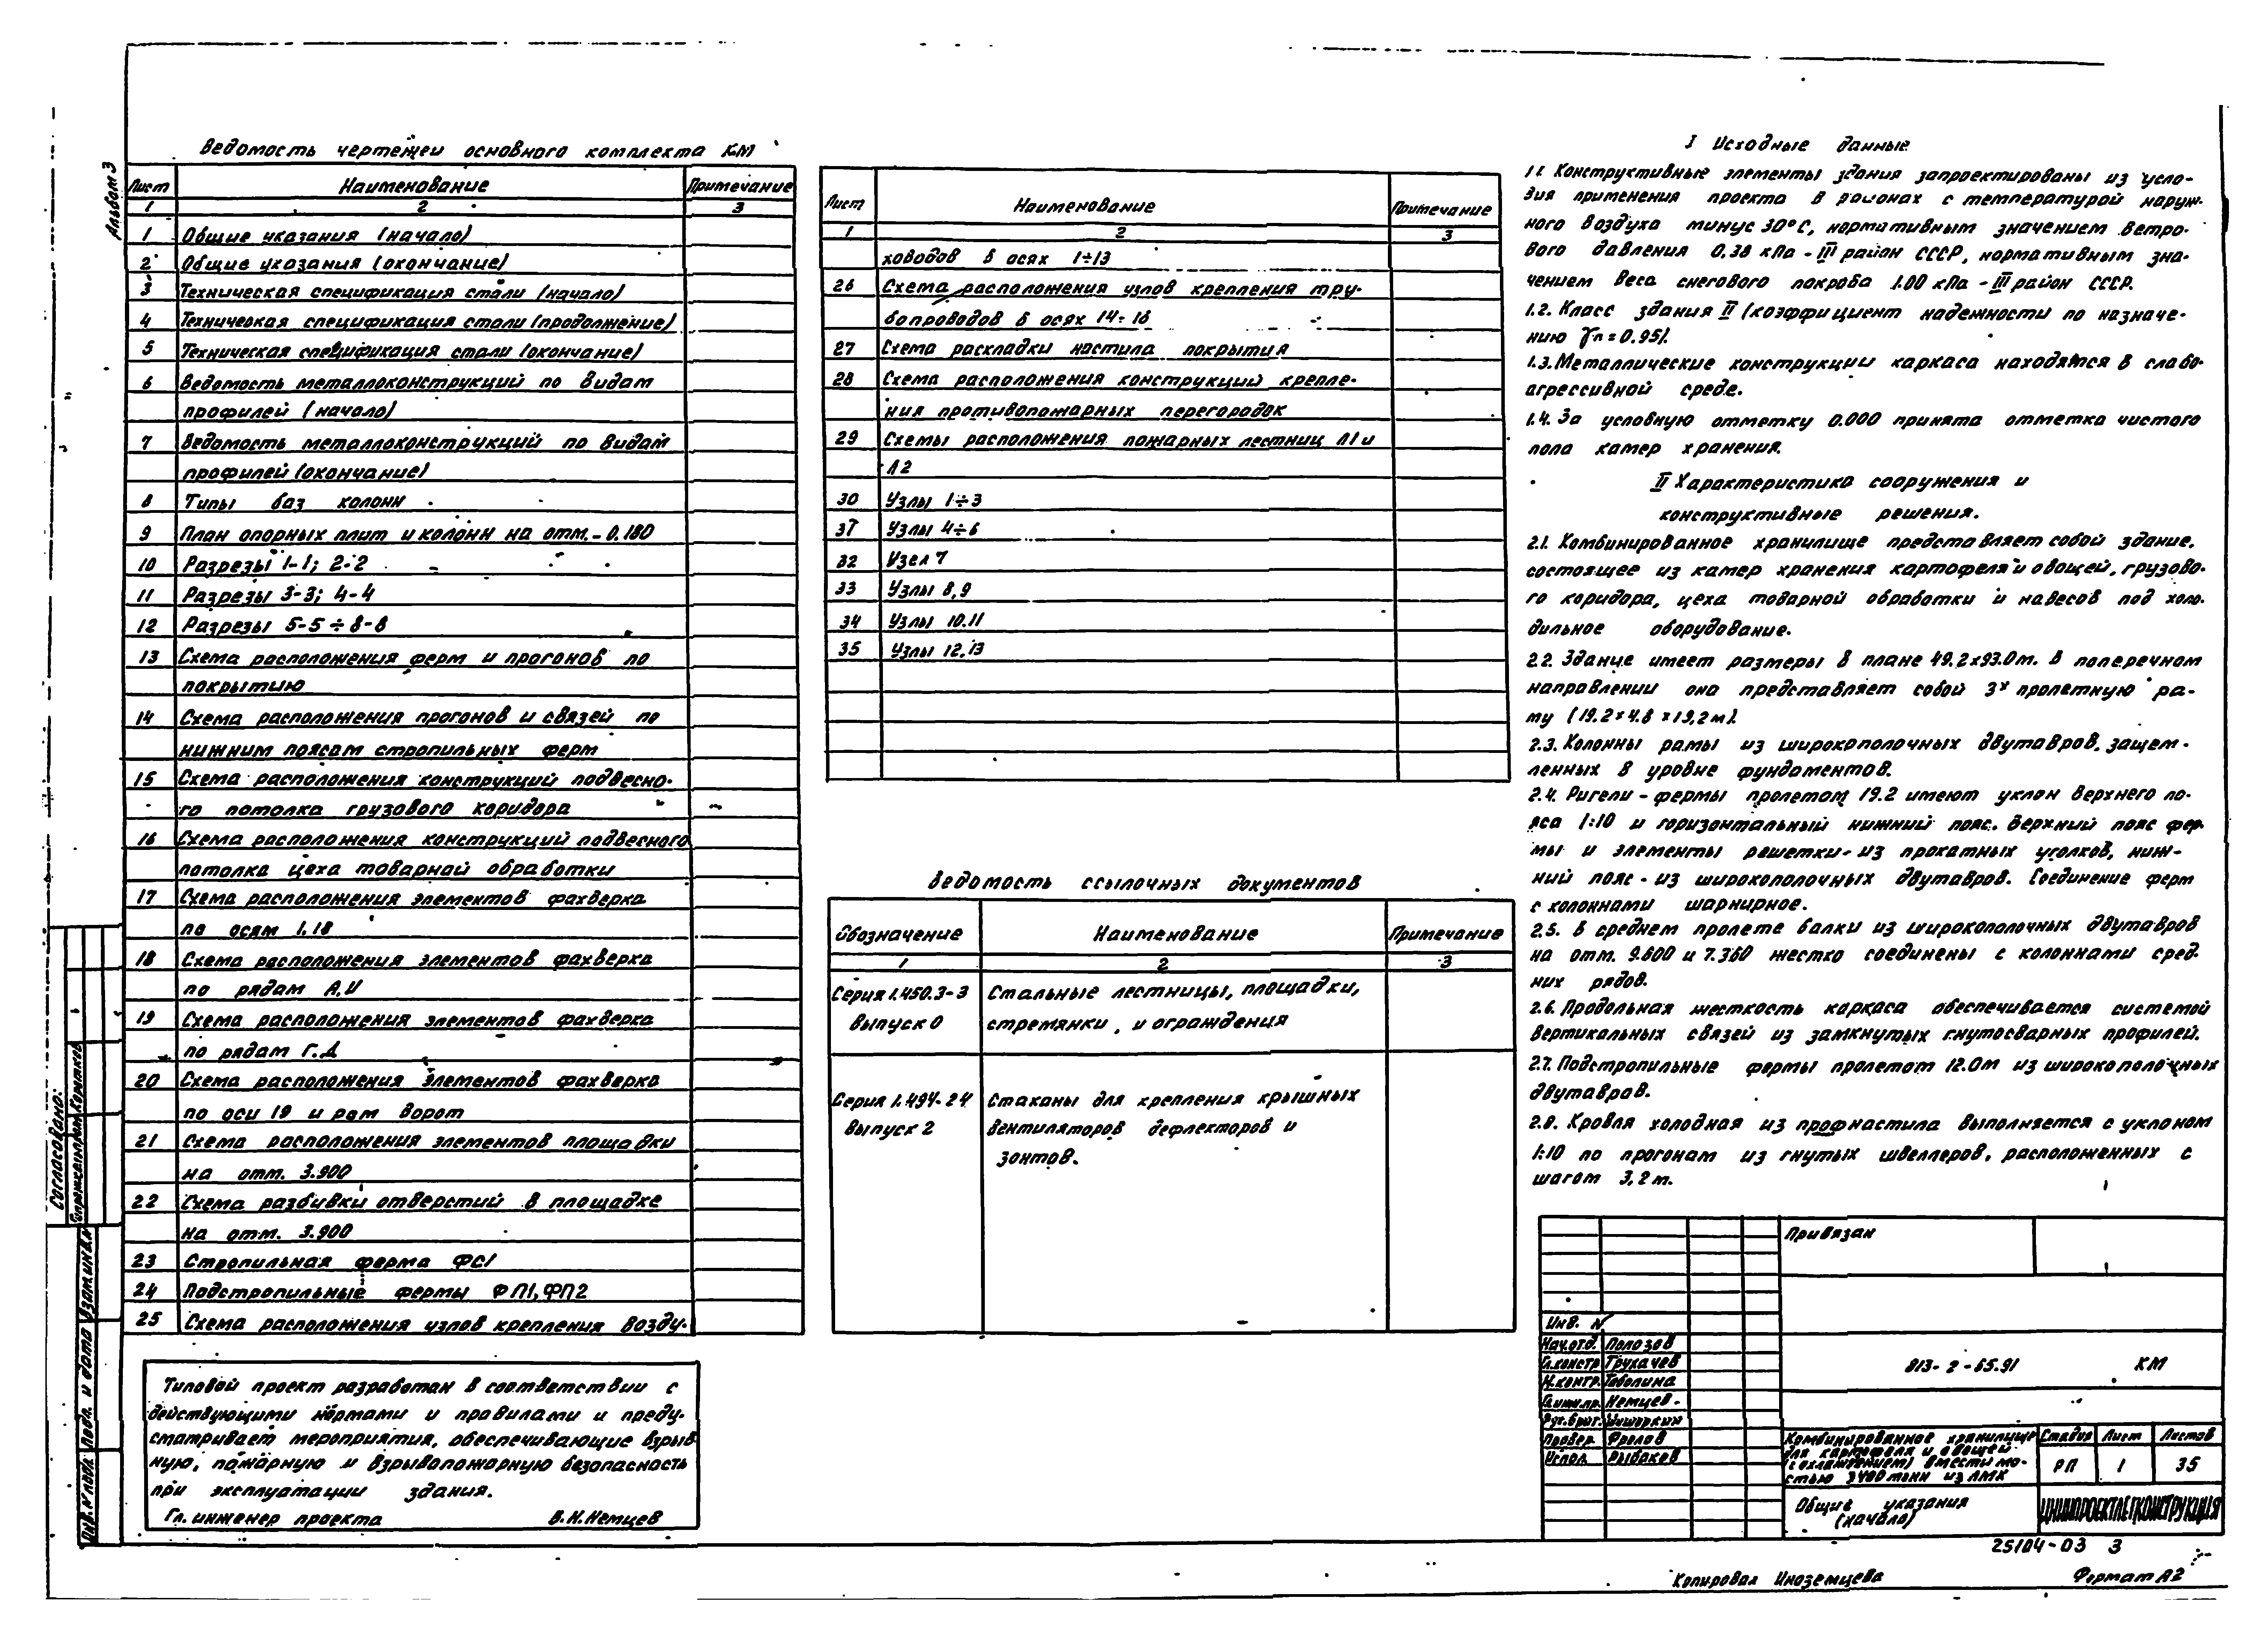 Альбом 3
Ведомость чертежей основного комплекта КМ
Лист Наименование Примечание
1 2 3
1 Общие указания (начало)
2 Общие указания (окончание)
3 Техническая спецификация стали (начало)
4 Техническая спецификация стали (продолжение)
5 Техническая спецификация стали (окончание)
6 Ведомость металлоконструкций по видам
профилей (начало)
7 Ведомость металлоконструкций по видам
профилей (окончание)
8 Типы баз колонн
9 План опорных плит и колонн на отм. - 0.180
10 Разрезы 1-1; 2-2
11 Разрезы 3-3; 4-4
12 Разрезы 5-5 ÷ 8-8
13 Схема расположения ферм и прогонов по
покрытию
14 Схема расположения прогонов и связей по
нижним поясам стропильных ферм
15 Схема расположения конструкций подвесно-
го потолка грузового коридора
16 Схема расположения конструкций подвесного
потолка цеха товарной обработки
17 Схема расположения элементов фахверка
по осям 1.18
18 Схема расположения элементов фахверка
по рядам А,И
19 Схема расположения элементов фахверка
по рядам Г.Д
20 Схема расположения элементов фахверка
по оси 19 и рам ворот
21 Схема расположения элементов площадки
на отм. 3.900
22 Схема разбивки отверстий в площадке
на отм. 3.900
23 Стропильная ферма ФС1
24 Подстропильные фермы ФП1,ФП2
25 Схема расположения узлов крепления возду-
Типовой проект разработан в соответствии с
действующими нормами и правилами и преду-
сматривает мероприятия, обеспечивающие взрыв-
ную, пожарную и взрывопожарную безопасность
при эксплуатации здания.
Гл. инженер проекта В.Н.Немцев
Лист Наименование Примечание
1 2 3
ховодов в осях 1÷13
26 Схема расположения узлов крепления тру-
бопроводов в осях 14÷18
27 Схема раскладки настила покрытия
28 Схема расположения конструкций крепле-
ния противопожарных перегородок
29 Схемы расположения пожарных лестниц Л1 и
Л2
30 Узлы 1÷3
31 Узлы 4÷6
32 Узел 7
33 Узлы 8,9
34 Узлы 10.11
35 Узлы 12.13
Ведомость ссылочных документов
Обозначение Наименование Примечание
1 2 3
Серия 1.450.3-3 Стальные лестницы, площадки,
выпуск 0 стремянки, и ограждения
Серия 1.494-24 Стаканы для крепления крышных
выпуск 2 вентиляторов дефлекторов и
зонтов.
I Исходные данные
1.1. Конструктивные элементы здания запроектированы из усло-
вия применения проекта в районах с температурой наруж-
ного воздуха минус 30°С, нормативным значением ветро-
вого давления 0.38 кПа - III район СССР, нормативным зна-
чением веса снегового покрова 1.00 кПа - III район СССР.
1.2. Класс здания II (коэффициент надежности по назначе-
нию γn = 0.95).
1.3. Металлические конструкции каркаса находятся в слабо-
агрессивной среде.
1.4. За условную отметку 0.000 принята отметка чистого
пола камер хранения.
II Характеристика сооружения и
конструктивные решения.
2.1. Комбинированное хранилище представляет собой здание,
состоящее из камер хранения картофеля и овощей, грузово-
го коридора, цеха товарной обработки и навесов под холо-
дильное оборудование.
2.2. Здание имеет размеры в плане 49.2х93.0м. В поперечном
направлении оно представляет собой 3х пролетную ра-
му (19.2 х 4.8 х 19,2 м).
2.3. Колонны рамы из широкополочных двутавров, защем-
ленных в уровне фундаментов.
2.4. Ригели - фермы пролетом 19.2 имеют уклон верхнего по-
яса 1:10 и горизонтальный нижний пояс. Верхний пояс фер-
мы и элементы решетки - из прокатных уголков, ниж-
ний пояс - из широкополочных двутавров. Соединение ферм
с колоннами шарнирное.
2.5. В среднем пролете балки из широкополочных двутавров
на отм. 9.600 и 7.360 жестко соединены с колоннами сред-
них рядов.
2.6. Продольная жесткость каркаса обеспечивается системой
вертикальных связей из замкнутых гнутосварных профилей.
2.7. Подстропильные фермы пролетом 12.0м из широкополочных
двутавров.
2.8. Кровля холодная из профнастила выполняется с уклоном
1:10 по прогонам из гнутых швеллеров, расположенных с
шагом 3,2 м.
Привязан
Инв. №
Нач.отд. Полозов
Гл.констр Трухачев
Н.контр. Таболина
Гл.инж.пр. Немцев
Рук.бриг. Шишоркин
Провер. Фролов
Испол. Рыбаков
813-2-65.91 КМ
Комбинированное хранилище
для картофеля и овощей
(с охлаждением) вместимо-
стью 3400 тонн из ЛМК
Стадия Лист Листов
РП 1 35
Общие указания
(начало)
ЦНИИПРОЕКТЛЕГКОНСТРУКЦИЯ
25104-03 3
Копировал Иноземцева Формат А2
Согласовано:
Коротков
Взам.инв.№
Подп. и дата
Инв.№ подл.